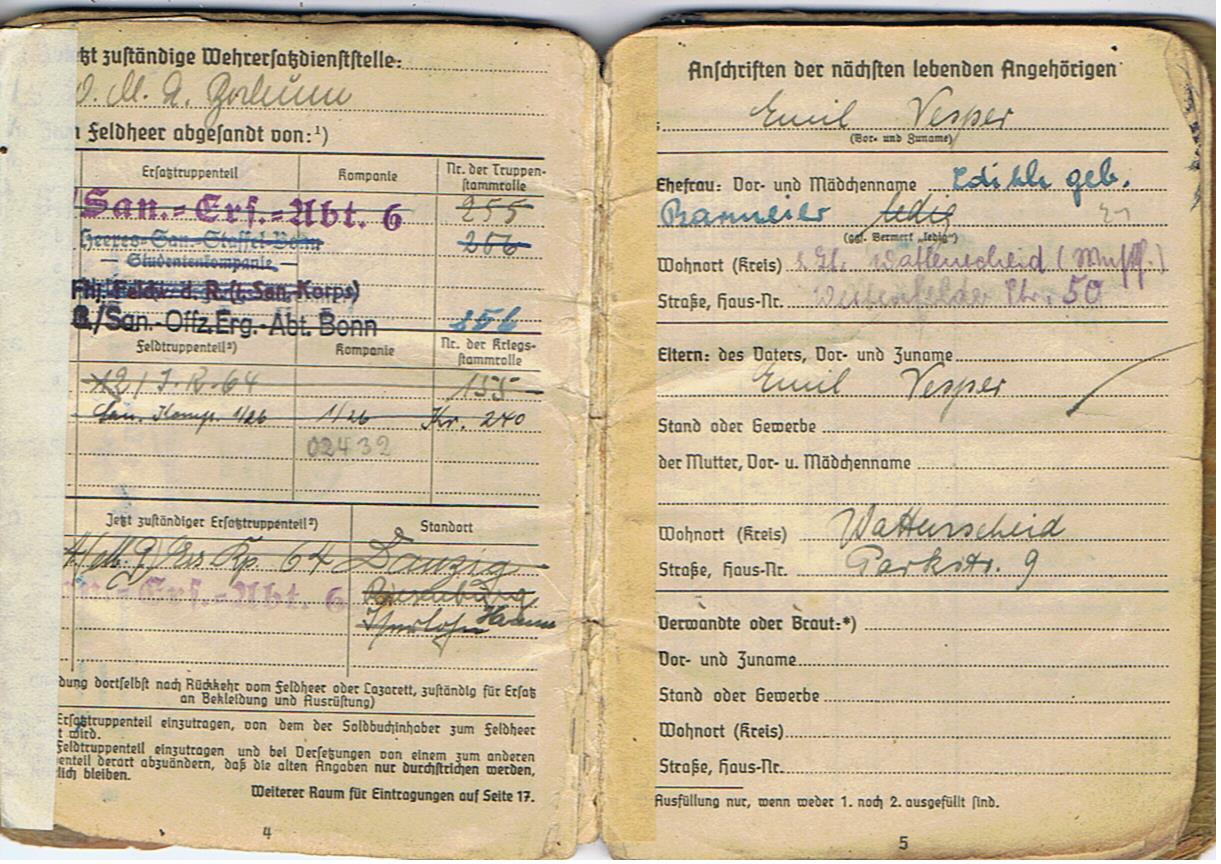 tzt zuständige Wehrersatzdienststelle:
Feldheer abgesandt von:¹)
Ersatztruppenteil Kompanie Nr. der Truppen-
stammrolle
San.-Ers.-Abt. 6 255
Heeres-San-Staffel-Bonn 256
— Studentenkompanie —
Fhj. Feldw. d. R. (i. San.-Korps)
/San.-Offz.Erg.-Abt. Bonn
Feldtruppenteil²) Kompanie Nr. der Kriegs-
stammrolle
12/J.R.64 135
San. Komp. 1/26 1/26 Nr. 240
02432
Jetzt zuständiger Ersatztruppenteil²) Standort
Ers Kp. 64 Danzig
-Ers.-Abt. 6
Iserlohn Hamm
dung dortselbst nach Rückkehr vom Feldheer oder Lazarett, zuständig für Ersatz
an Bekleidung und Ausrüstung)
Ersatztruppenteil einzutragen, von dem der Soldbuchinhaber zum Feldheer
t wird.
Feldtruppenteil einzutragen und bei Versetzungen von einem zum anderen
enteil derart abzuändern, daß die alten Angaben nur durchstrichen werden,
lich bleiben.
Weiterer Raum für Eintragungen auf Seite 17.
4
Anschriften der nächsten lebenden Angehörigen
Emil Vesper
(Vor- und Zuname)
Ehefrau: Vor- und Mädchenname geb.
ledig
(ggf. Vermerk „ledig“)
Wohnort (Kreis) Wattenscheid
Straße, Haus-Nr. Str. 50
Eltern: des Vaters, Vor- und Zuname
Emil Vesper
Stand oder Gewerbe
der Mutter, Vor- u. Mädchenname
Wohnort (Kreis) Wattenscheid
Straße, Haus-Nr. Parkstr. 9
Verwandte oder Braut:*)
Vor- und Zuname
Stand oder Gewerbe
Wohnort (Kreis)
Straße, Haus-Nr.
Ausfüllung nur, wenn weder 1. noch 2. ausgefüllt sind.
5